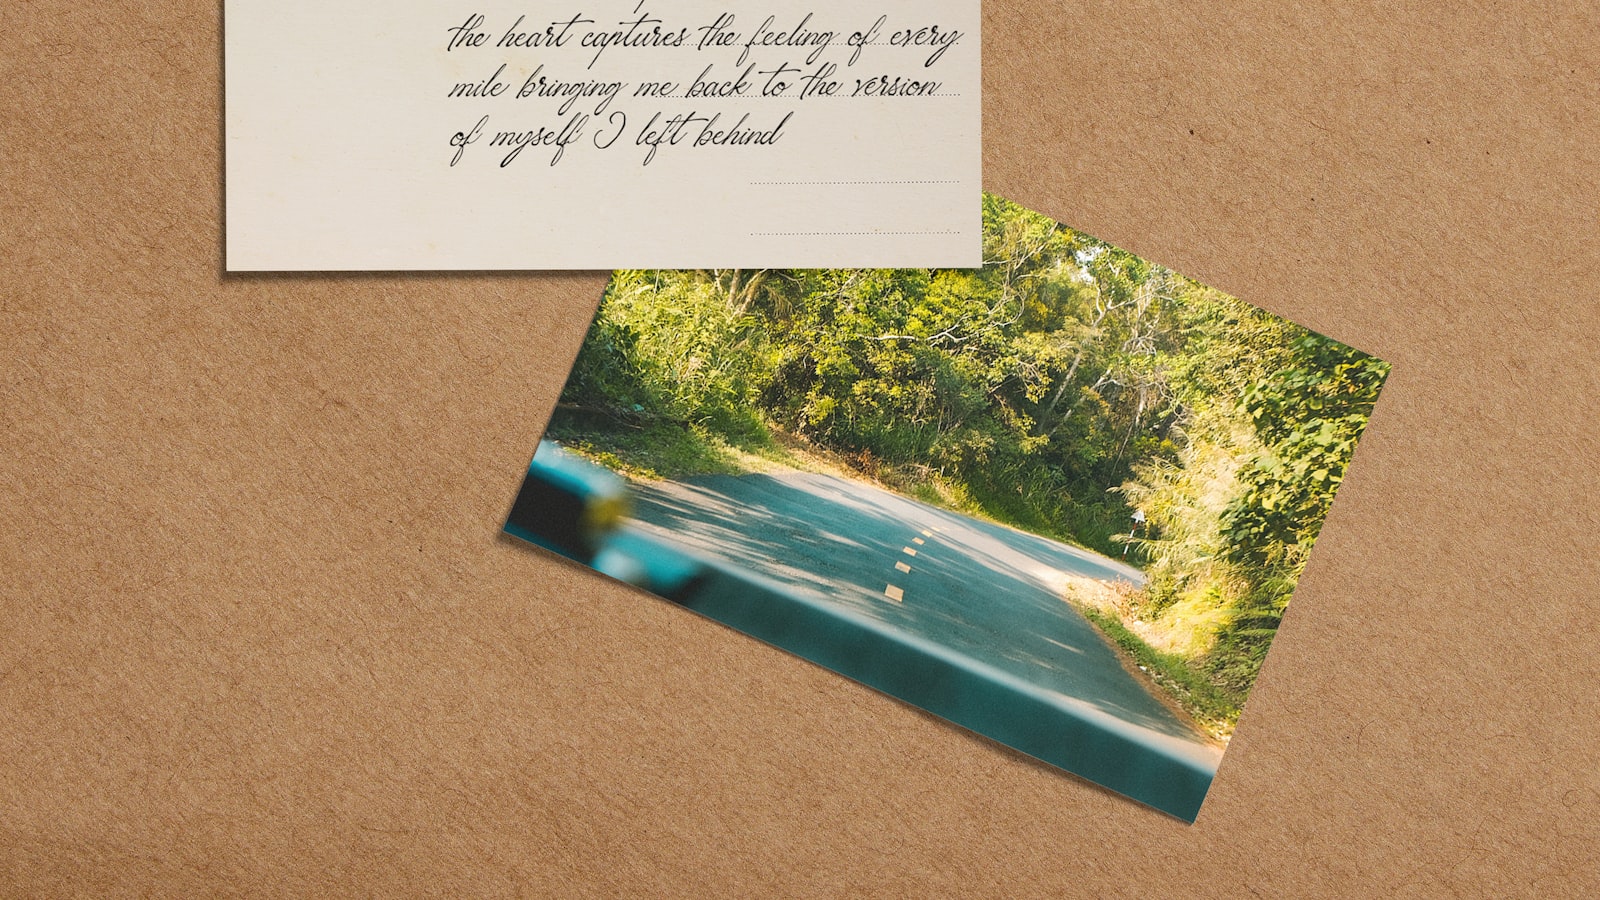 the heart captures the feeling of every
mile bringing me back to the version
of myself I left behind